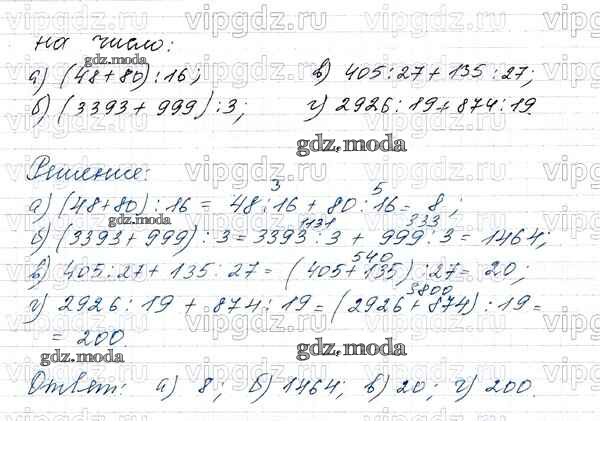 vipgdz.ru vipgdz.ru vipgdz.ru vipgdz.ru
на число:
gdz.moda
а) (48+80):16; в) 405:27+135:27;
б) (3393+999):3; г) 2926:19+874:19.
gdz.moda
Решение:
3 5
а) (48+80):16 = 48:16 + 80:16 = 8;
gdz.moda
1131 333
б) (3393+999):3 = 3393:3 + 999:3 = 1464;
540
в) 405:27 + 135:27 = (405+135):27 = 20;
3800
г) 2926:19 + 874:19 = (2926+874):19 =
= 200.
gdz.moda gdz.moda
Ответ: а) 8; б) 1464; в) 20; г) 200.